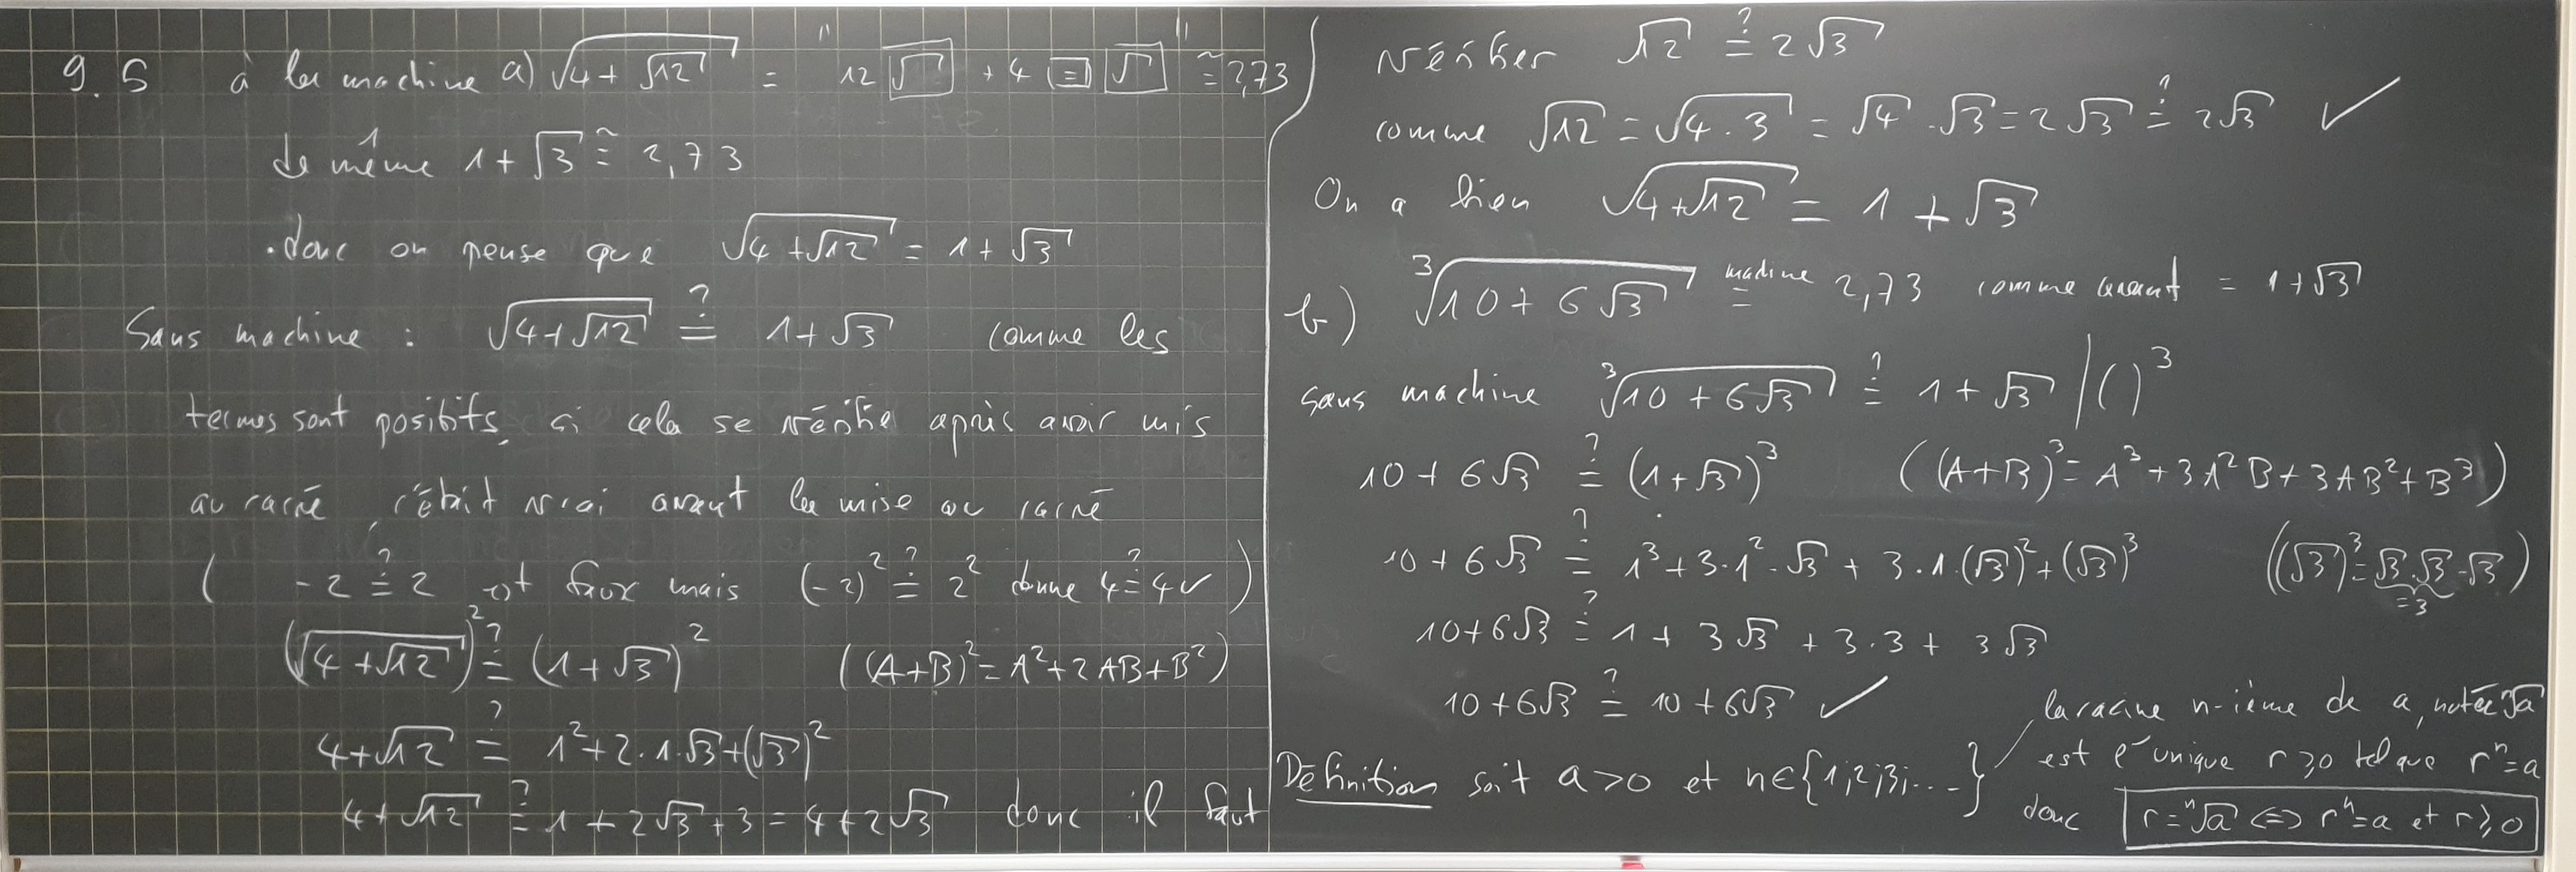 9.5 à la machine a) √(4+√12) = "12 [√] + 4 [=] [√]" ≅ 2,73
de même 1+√3 ≅ 2,73
• donc on pense que √(4+√12) = 1+√3
Sans machine : √(4+√12) ≟ 1+√3 comme les
termes sont positifs, si cela se vérifie après avoir mis
au carré, c'était vrai avant la mise au carré
( -2 ≟ 2 est faux mais (-2)² ≟ 2² donne 4 ≟ 4 ✓ )
(√(4+√12))² ≟ (1+√3)² ((A+B)² = A²+2AB+B²)
4+√12 ≟ 1²+2·1·√3+(√3)²
4+√12 ≟ 1+2√3+3 = 4+2√3 donc il faut
vérifier √12 ≟ 2√3
comme √12 = √(4·3) = √4·√3 = 2√3 ≟ 2√3 ✓
On a bien √(4+√12) = 1+√3
b) ∛(10+6√3) machine = 2,73 comme avant = 1+√3
sans machine ∛(10+6√3) ≟ 1+√3 | ( )³
10+6√3 ≟ (1+√3)³ ((A+B)³ = A³+3A²B+3AB²+B³)
10+6√3 ≟ 1³+3·1²·√3+3·1·(√3)²+(√3)³ ((√3)³ = √3·√3·√3)
=3
10+6√3 ≟ 1+3√3+3·3+3√3
10+6√3 ≟ 10+6√3 ✓
Définition soit a>0 et n∈{1;2;3;...}
la racine n-ième de a, notée ⁿ√a
est l'unique r⩾0 tel que rⁿ=a
donc r=ⁿ√a ⇔ rⁿ=a et r⩾0